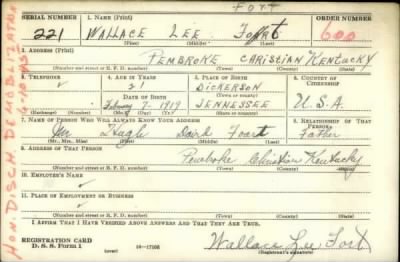 FORT
SERIAL NUMBER 1. NAME (Print) ORDER NUMBER
221 WALLACE LEE FORT 600
(First) (Middle) (Last)
2. ADDRESS (Print)
PEMBROKE CHRISTIAN KENTUCKY
(Number and street or R. F. D. number) (Town) (County) (State)
3. TELEPHONE 4. AGE IN YEARS 5. PLACE OF BIRTH 6. COUNTRY OF CITIZENSHIP
21 DICKERSON
DATE OF BIRTH (Town or county)
February 7 - 1919 TENNESSEE U.S.A.
(Exchange) (Number) (Mo.) (Day) (Yr.) (State or country)
7. NAME OF PERSON WHO WILL ALWAYS KNOW YOUR ADDRESS 8. RELATIONSHIP OF THAT PERSON
Mr Hugh Baird Foart Father
(Mr., Mrs., Miss) (First) (Middle) (Last)
9. ADDRESS OF THAT PERSON
Pembroke Christian Kentucky
(Number and street or R. F. D. number) (Town) (County) (State)
10. EMPLOYER'S NAME
11. PLACE OF EMPLOYMENT OR BUSINESS
(Number and street or R. F. D. number) (Town) (County) (State)
I AFFIRM THAT I HAVE VERIFIED ABOVE ANSWERS AND THAT THEY ARE TRUE.
REGISTRATION CARD
D. S. S. Form 1 (over) 16-17105 Wallace Lee Fort
(Registrant's signature)
HON DISCH DEMOBILIZATION